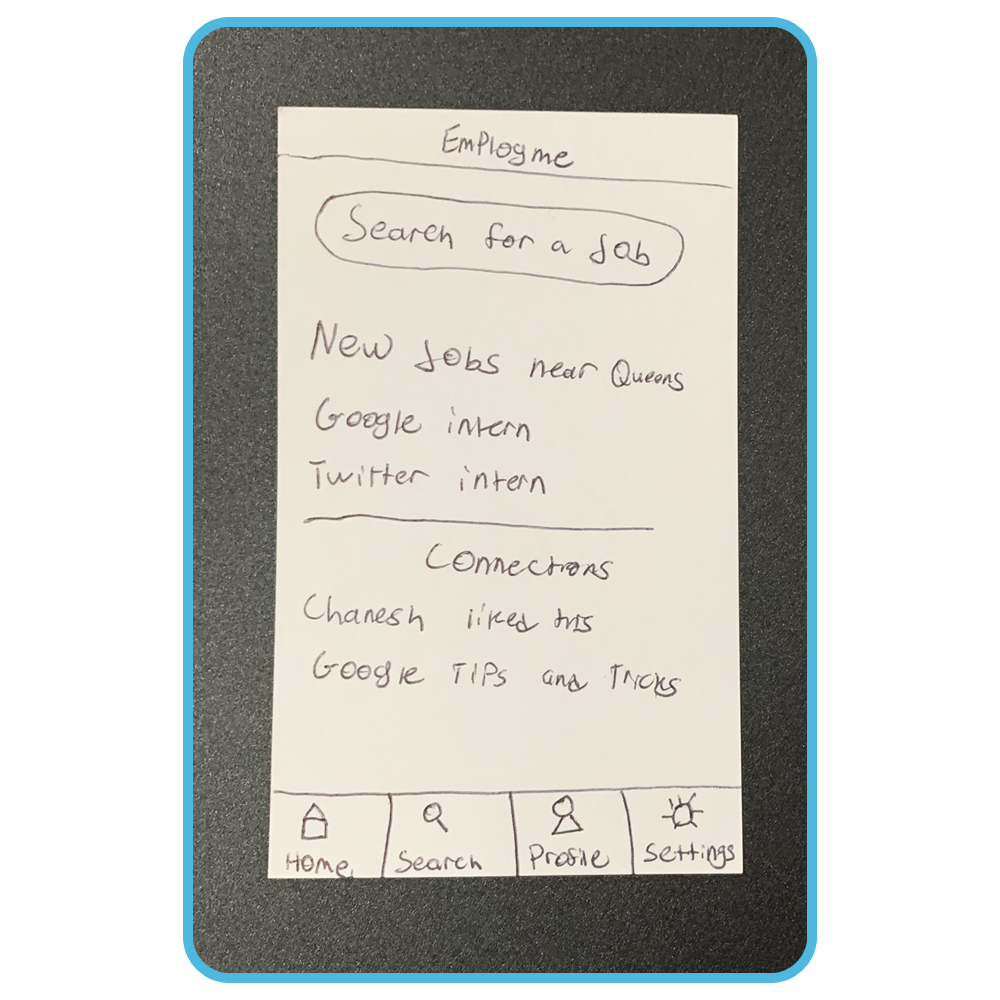 Employme
Search for a Job
New Jobs near Queens
Google intern
Twitter intern
Connections
Chanesh liked this
Google Tips and Tricks
Home Search Profile Settings